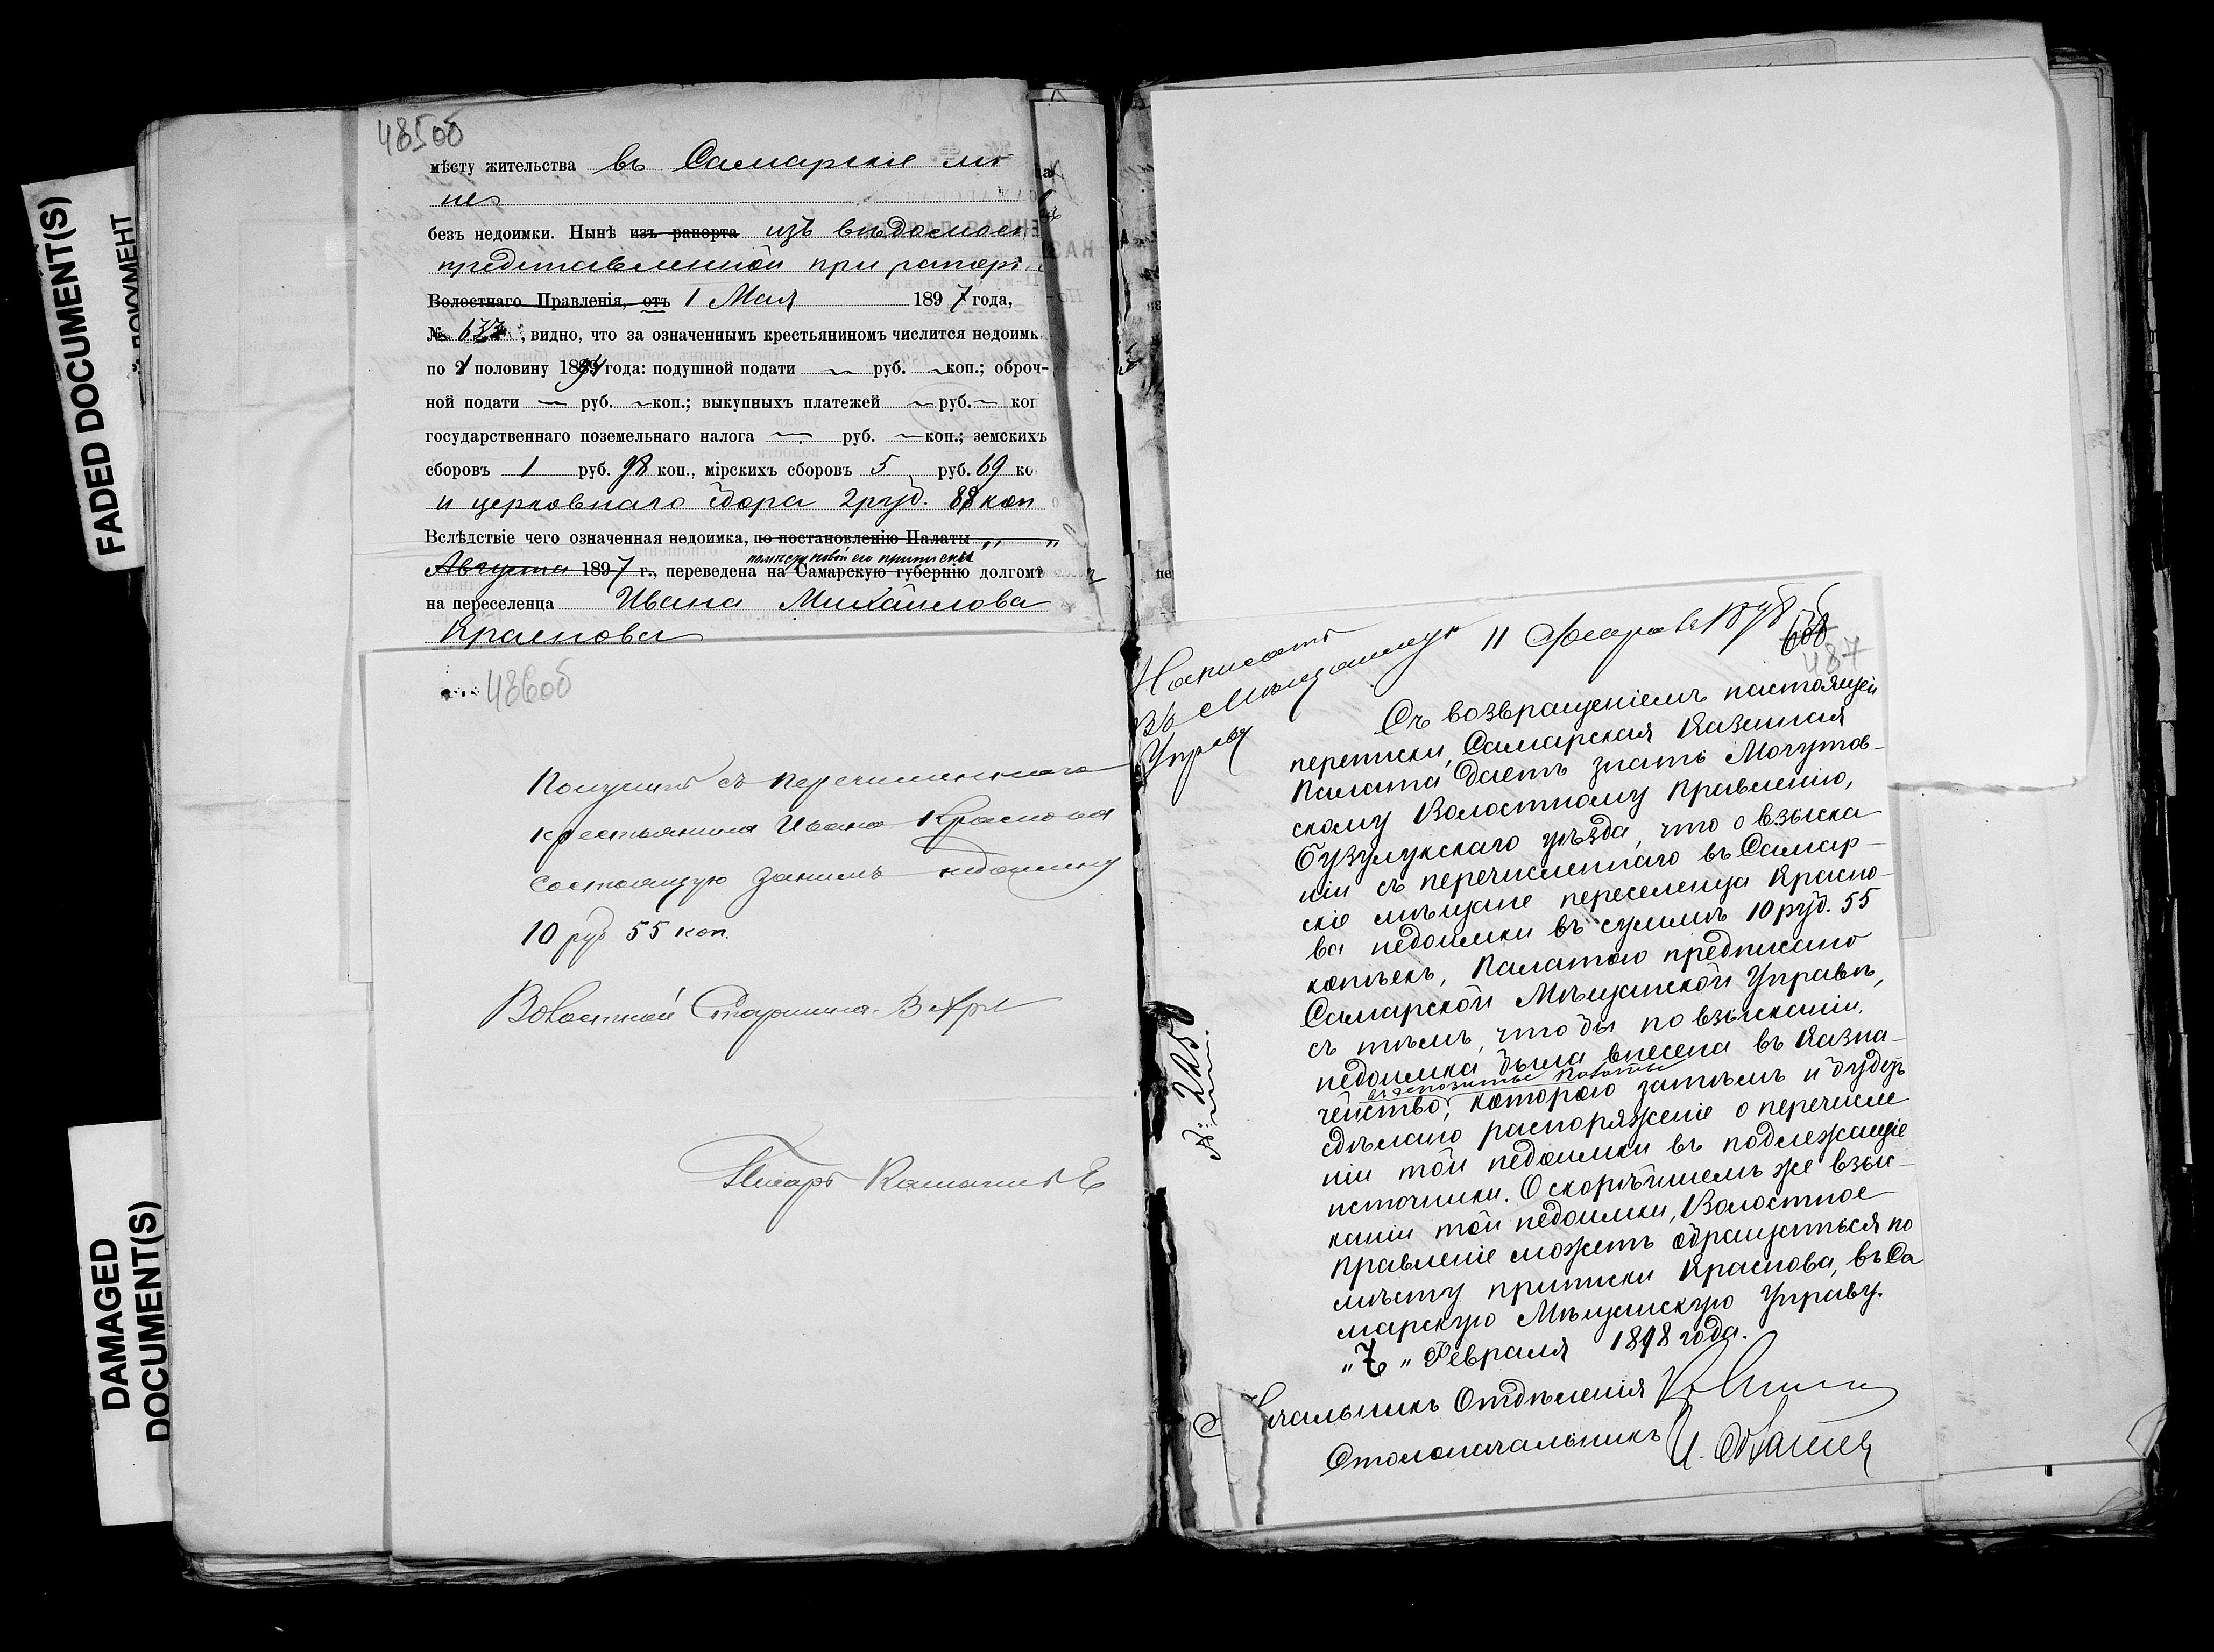 FADED DOCUMENT(S)
ДОКУМЕНТ
DAMAGED
DOCUMENT(S)
485об
мѣсту жительства въ Самарскіе мѣ
не
безъ недоимки. Нынѣ изъ рапорта изъ вѣдомост
представленной при рапорт
Волостнаго Правленія, отъ 1 Мая 1897 года,
№ 633, видно, что за означеннымъ крестьяниномъ числится недоимк
по 1 половину 1894 года: подушной подати — руб. — коп.; оброч-
ной подати — руб. — коп.; выкупныхъ платежей — руб. — коп
государственнаго поземельнаго налога — руб. — коп.; земскихъ
сборовъ 1 руб. 98 коп., мірскихъ сборовъ 5 руб. 69 ко
и церковнаго сбора 2 руб. 88 коп
Вслѣдствіе чего означенная недоимка, по постановленію Палаты „ „
по мѣсту новой его приписки
Августа 1897 г., переведена на Самарскую губернію долгомъ
на переселенца Ивана Михайлова
Краснова
486об
Получить съ перечисленнаго
крестьянина Ивана Краснова
состоящую за нимъ недоимку
10 руб 55 коп.
Волостной Старшина
Писарь
Написать
въ Мѣщанскую
Управу
11 Февраля 1898
487
Съ возвращеніемъ настоящей
переписки, Самарская Казенная
Палата даетъ знать Могутов-
скому Волостному Правленію,
Бузулукскаго уѣзда, что о взыска
ніи съ перечисленнаго въ Самар-
скіе мѣщане переселенца Красно-
ва недоимки въ суммѣ 10 руб. 55
копѣекъ, Палатою предписано
Самарской Мѣщанской Управѣ,
съ тѣмъ, чтобы по взысканіи,
недоимка была внесена въ Казна-
въ депозиты Палаты
чейство, которою затѣмъ и будетъ
сдѣлано распоряженіе о перечисле
ніи той недоимки въ подлежащіе
источники. О скорѣйшемъ же взыс-
каніи той недоимки, Волостное
Правленіе можетъ обращаться по
мѣсту приписки Краснова, въ Са
марскую Мѣщанскую Управу.
„7„ Февраля 1898 года.
Начальникъ Отдѣленія
Столоначальникъ